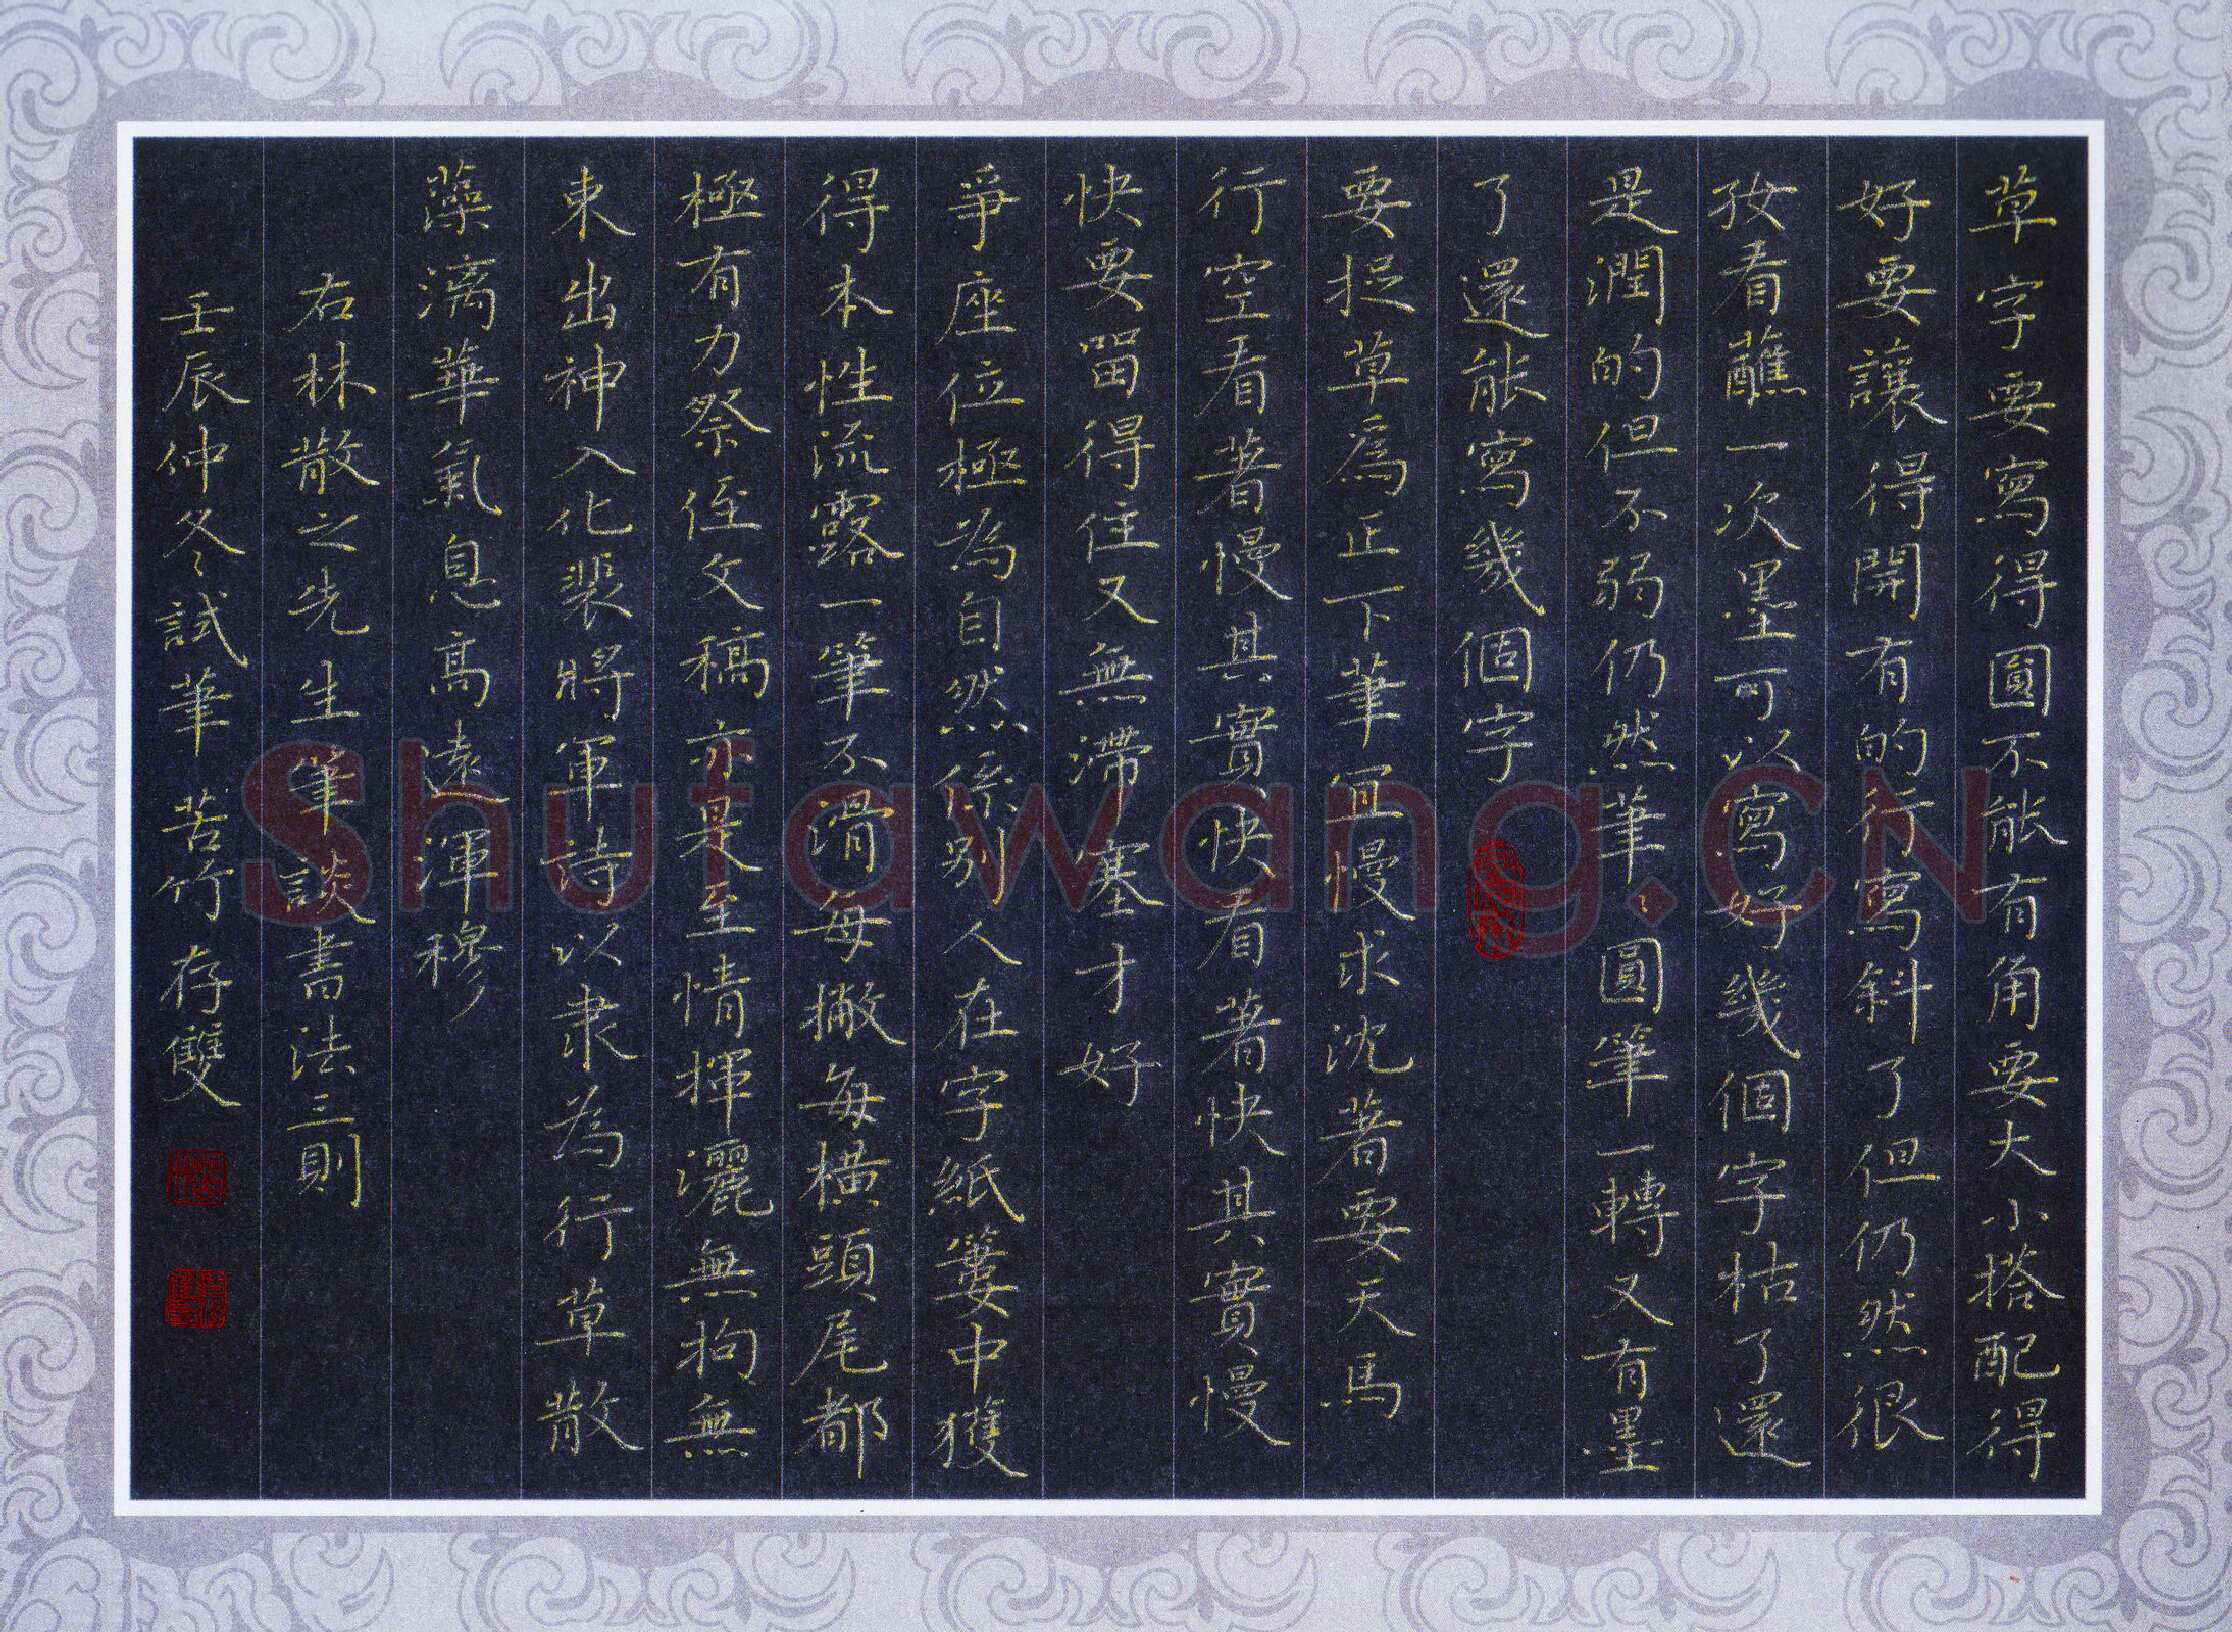 草字要寫得圓不能有角要大小搭配得
好要讓得開有的行寫斜了但仍然很
好看蘸一次墨可以寫好幾個字枯了還
是潤的但不弱仍然筆筆圓筆一轉又有墨
了還能寫幾個字
要捉草為正下筆宜慢求沈著要天馬
行空看著慢其實快看著快其實慢
快要留得住又無滯塞才好
爭座位極為自然係別人在字紙簍中獲
得本性流露一筆不滑每撇每橫頭尾都
極有力祭侄文稿亦是至情揮灑無拘無
束出神入化裴將軍詩以隸為行草散
藻漓華氣息高遠渾穆
右林散之先生筆談書法三則
壬辰仲冬試筆 苦竹 存雙
Shufawang.CN